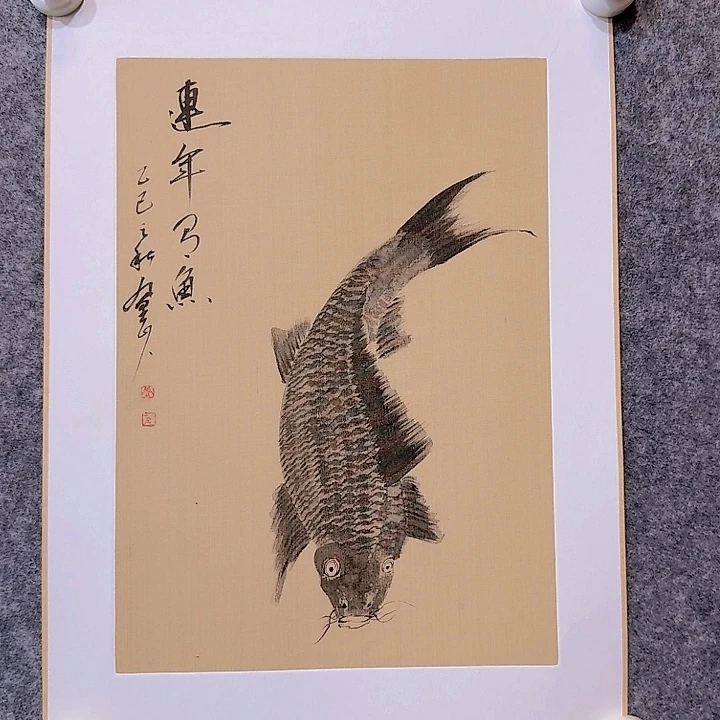 連年有魚
乙巳之秋